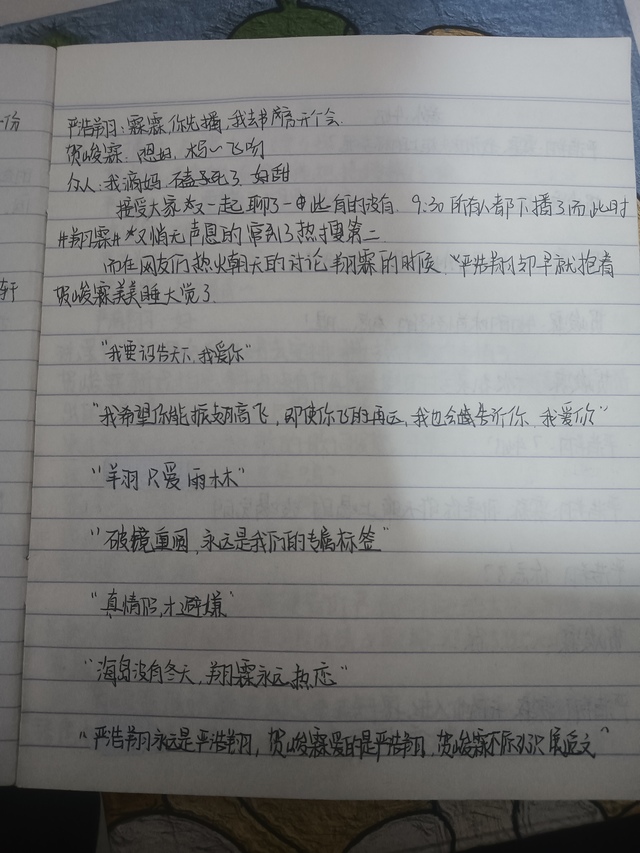 份
严浩翔：霖霖，你先播，我去书房开个会.
贺峻霖：恩恩，木马～飞吻
众人：我滴妈，磕死了，好甜
接受大家*又一起聊了一些有的没有. 9:30所有人都下播了而此时
#翔霖#*又悄无声息的窜到了热搜第二
而在网友们热火朝天的讨论翔霖的时候、严浩翔却早就抱着
轩
贺峻霖美美睡大觉了.
“我要诏告天下，我爱你”
“我希望你能振翅高飞，即使你飞的再远，我也会喊告诉你 我爱你”
“羊羽只爱雨林”
“破镜重圆，永远是我们的专属标签”
“真情侣，才避嫌”
“海岛没有冬天，翔霖永远热恋”
“严浩翔永远是严浩翔，贺峻霖爱的是严浩翔，贺峻霖不